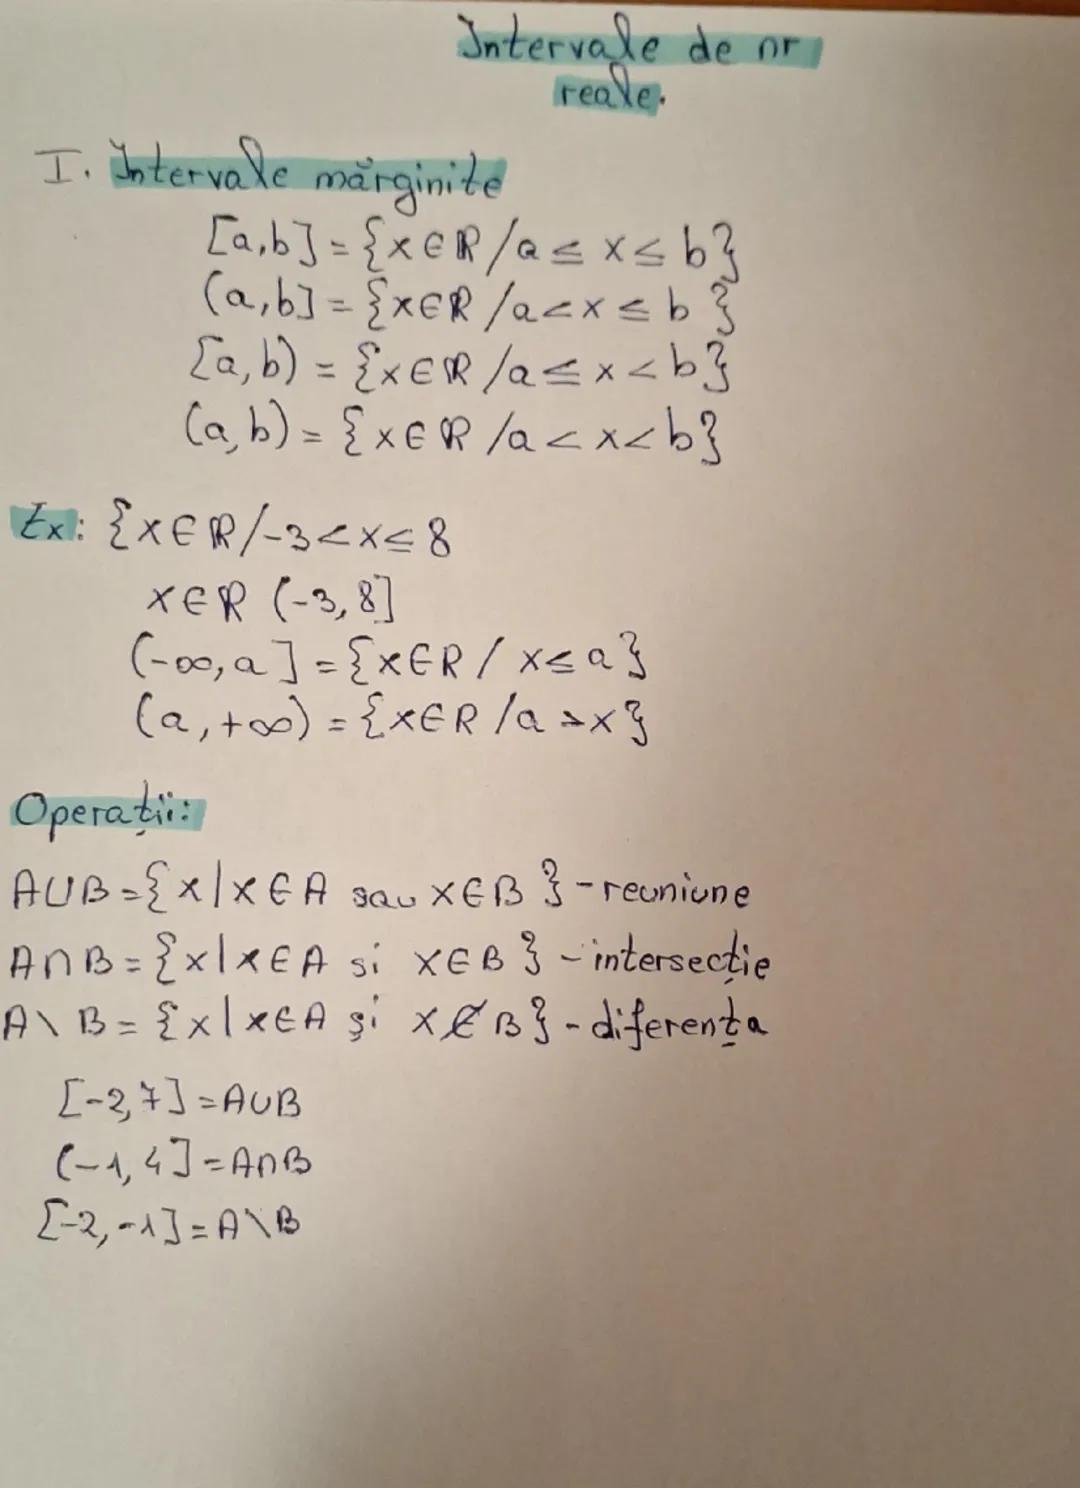 Intervale de nr
reale.
I. Intervale mărginite
[a,b] = {x∈ℝ/a ≤ x ≤ b}
(a,b] = {x∈ℝ/a < x ≤ b}
[a,b) = {x∈ℝ/a ≤ x < b}
(a,b) = {x∈ℝ/a < x < b}
Ex: {x∈ℝ/-3 < x ≤ 8
x∈ℝ (-3, 8]
(-∞, a] = {x∈R / x ≤ a}
(a, +∞) = {x∈R /a > x}
Operații:
A∪B = {x|x∈A sau x∈B} - reuniune
A∩B = {x|x∈A si x∈B} - intersecție
A\B = {x|x∈A și x∉B} - diferența
[-2,7] = A∪B
(-1, 4] = A∩B
[-2, -1] = A\B